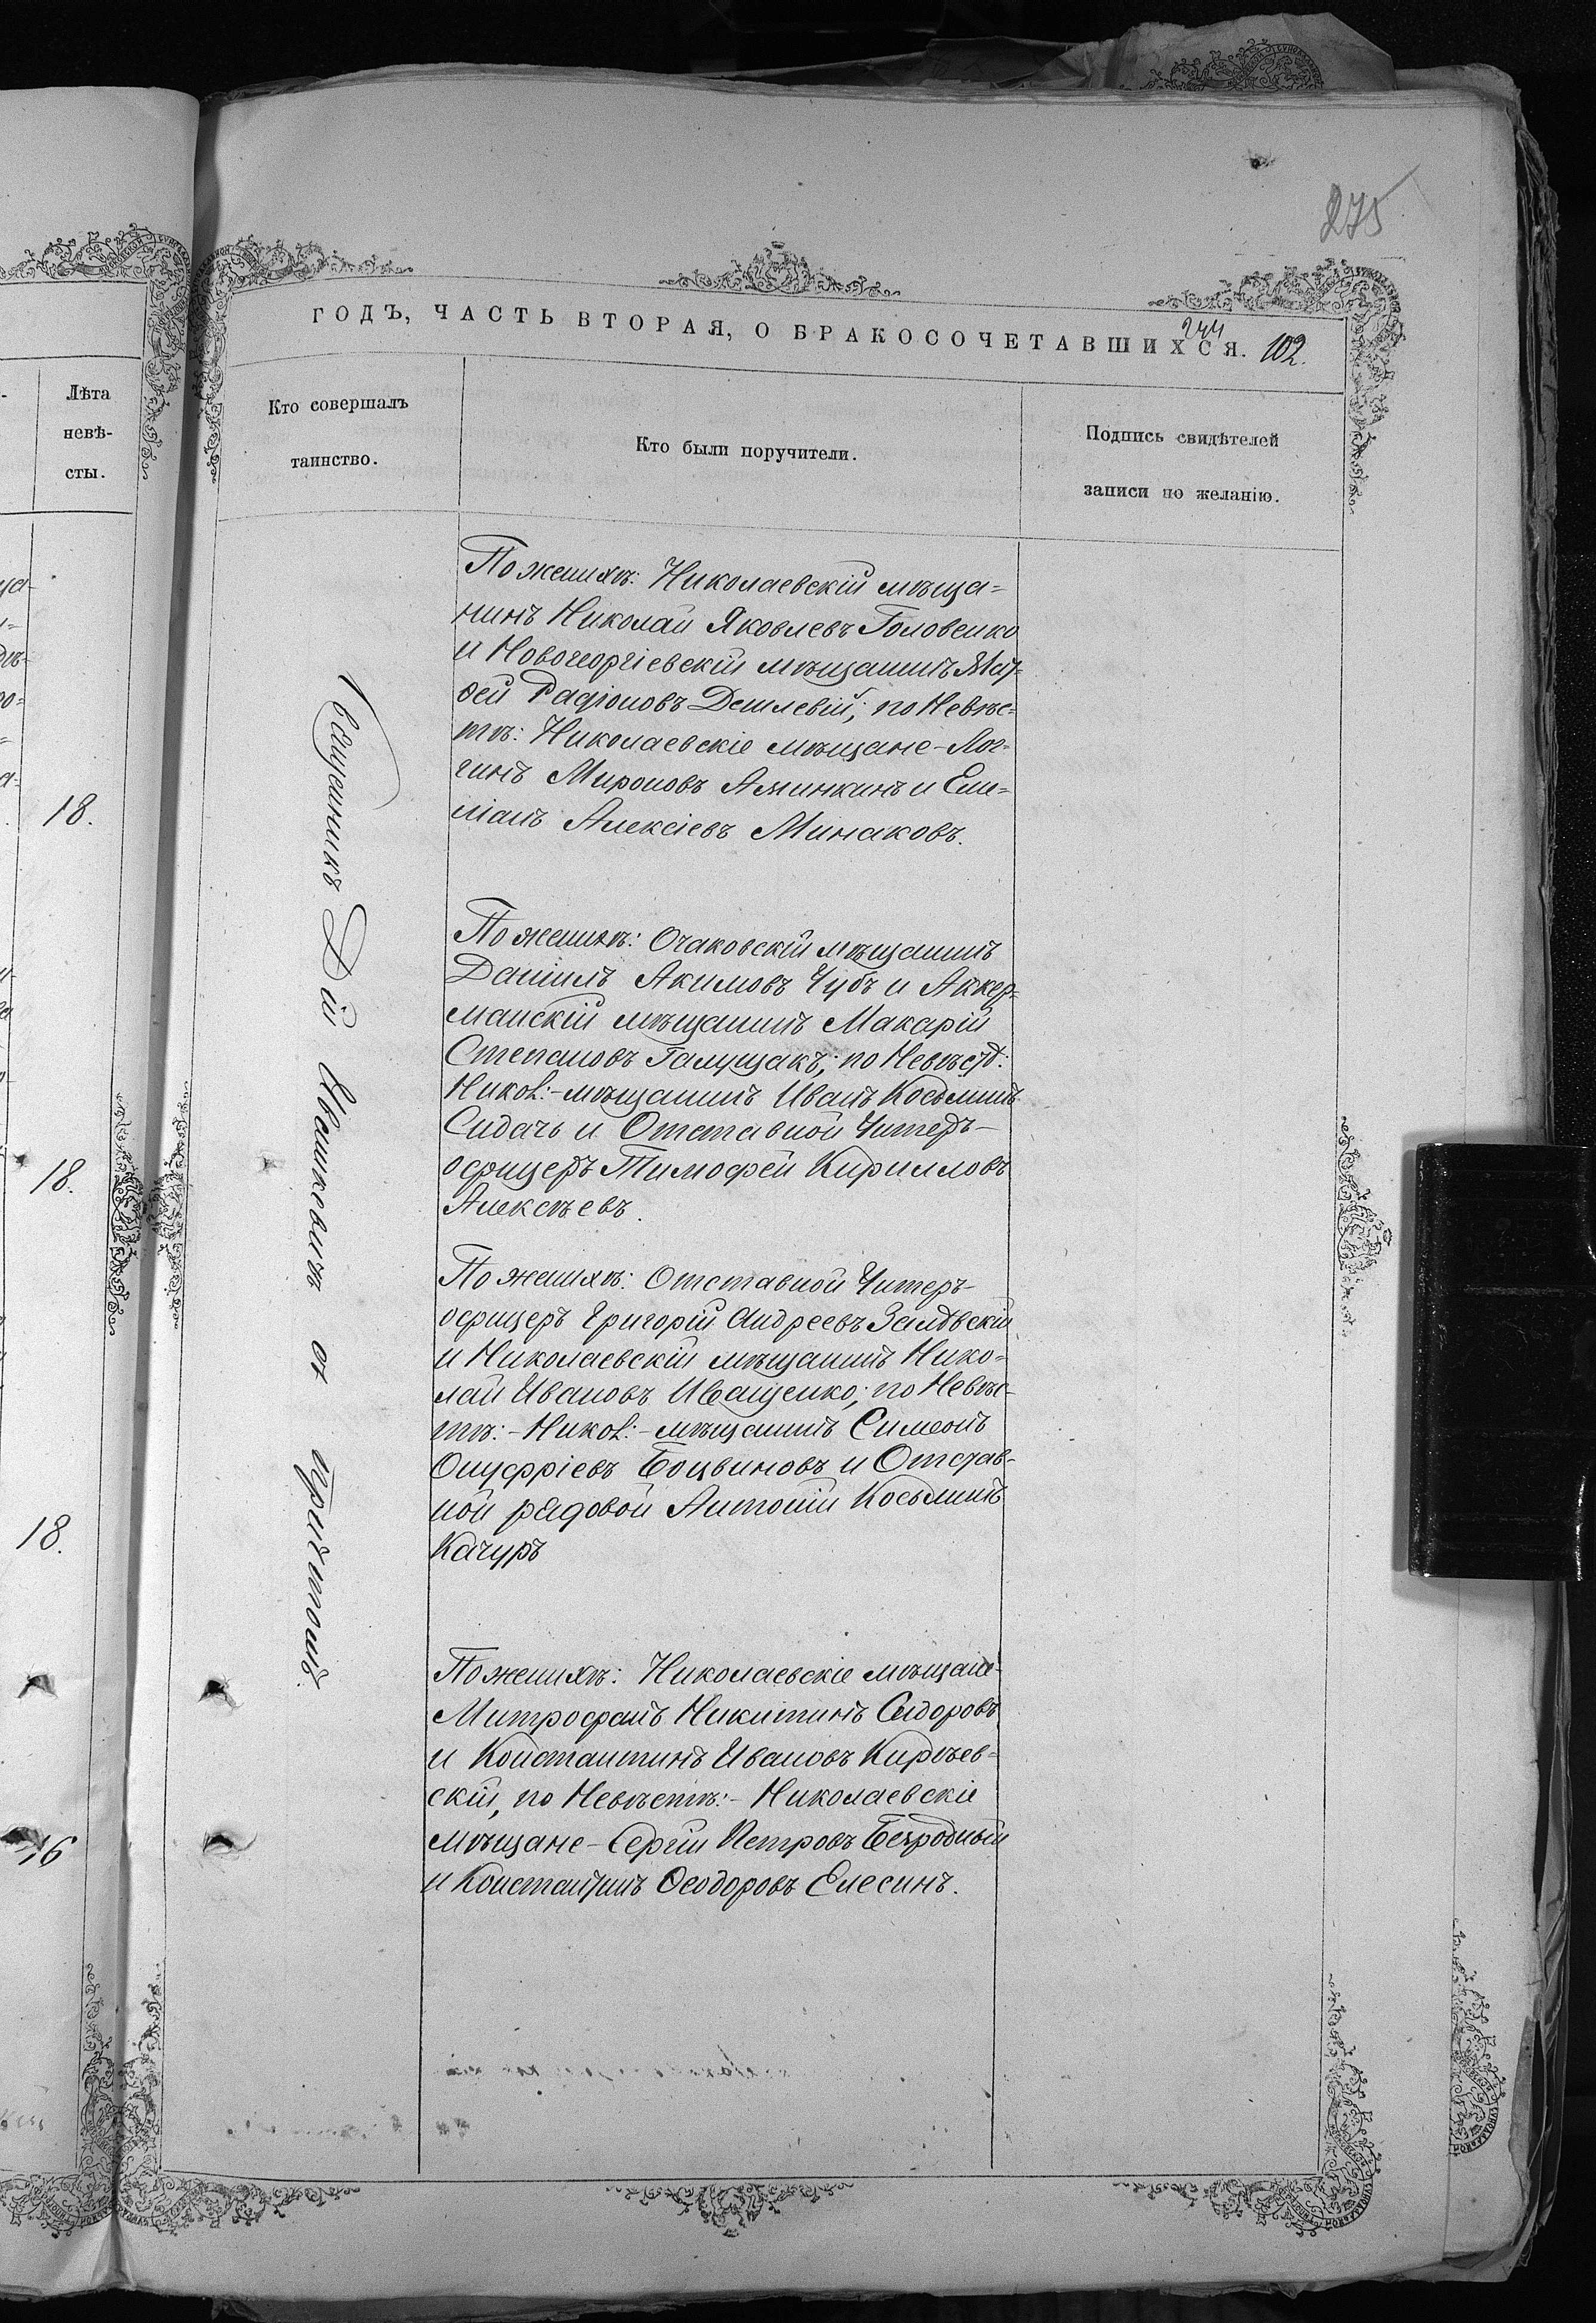 275
ГОДЪ, ЧАСТЬ ВТОРАЯ, О БРАКОСОЧЕТАВШИХСЯ.
244
102.
Лѣта
невѣ-
сты.
Кто совершалъ
таинство.
Кто были поручители.
Подпись свидѣтелей
записи по желанію.
18.
18.
18.
16
Священникъ Дій Ивашкевичъ съ причтомъ.
По женихѣ: Николаевскій мѣща=
нинъ Николай Яковлевъ Головенко
и Новогеоргіевскій мѣщанинъ Мат-
ѳей Радіоновъ Дешлевій; по Невѣс=
тѣ: Николаевскіе мѣщане - Лог=
гинъ Мироновъ Аминкинъ и Еми=
ліанъ Алексіевъ Минаковъ.
По женихѣ: Очаковскій мѣщанинъ
Даніилъ Акимовъ Чубъ и Аккер=
манскій мѣщанинъ Макарій
Степановъ Галущакъ; по Невѣстѣ:
Никол:- мѣщанинъ Иванъ Косьминъ
Сидачъ и Отставной Унтеръ-
офицеръ Тимофей Кирилловъ
Алексѣевъ.
По женихѣ: Отставной Унтеръ-
офицеръ Григорій Андреевъ
и Николаевскій мѣщанинъ Нико=
лай Ивановъ Иващенко; по Невѣс-
тѣ:- Никол:- мѣщанинъ Симеонъ
Онуфріевъ Боцвиновъ и Отстав-
ной рядовой Антоній Косьминъ
Качуръ
По женихѣ: Николаевскіе мѣщане-
Митрофанъ Никитинъ Сидоровъ
и Константинъ Ивановъ Кирѣев=
скій, по Невѣстѣ:- Николаевскіе
мѣщане - Сергій Петровъ Безродный
и Константинъ Ѳеодоровъ Елесинъ.